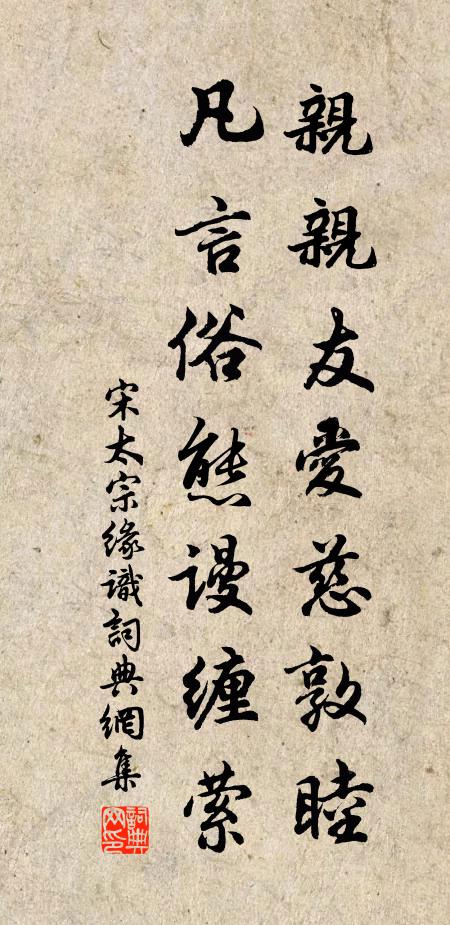 親親友愛慈敦睦
凡言俗態謾纏縈
宋太宗緣識詞典網集
詞典网印